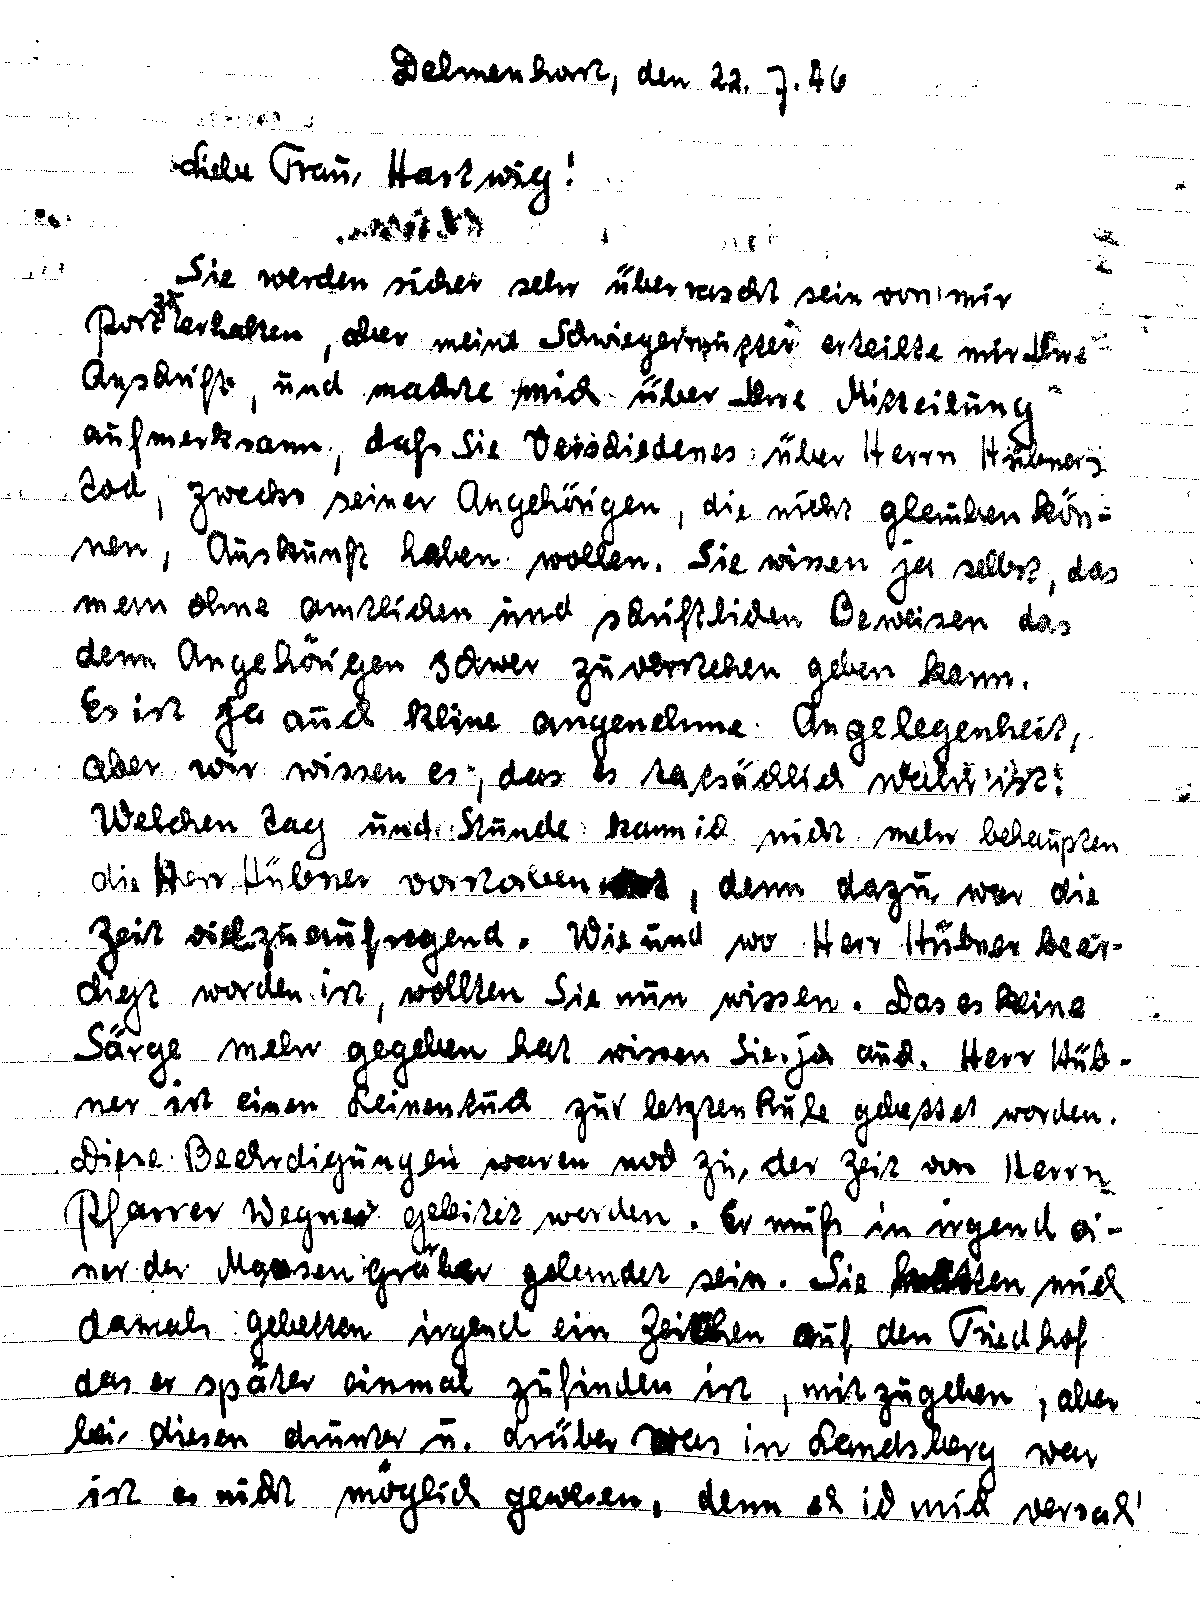 Delmenhorst, den 22. 7. 46
Liebe Frau, Hartwig!
Sie werden sicher sehr überrascht sein von mir
Post zu erhalten, aber meine Schwiegermutter erteilte mir Ihre
Anschrift, und machte mich über Ihre Mitteilung
aufmerksam, daß Sie Verschiedenes über Herrn Hübners
Tod, zwecks seiner Angehörigen, die nicht glauben kön-
nen, Auskunft haben wollen. Sie wissen ja selbst, das
man ohne amtlichen und schriftlichen Beweisen das
denn Angehörigen schwer zu verstehen geben kann.
Es ist ja auch keine angenehme Angelegenheit,
aber wir wissen es, das es tatsächlich wahr ist.
Welchen Tag und Stunde kann ich nicht mehr behaupten
die Herr Hübner verstorben, denn dazu war die
Zeit viel zu aufregend. Wie und wo Herr Hübner beer-
digt worden ist, wollten Sie nun wissen. Das es keine
Särge mehr gegeben hat wissen Sie ja auch. Herr Hüb-
ner ist einen Leinentuch zur letzten Ruhe gebettet worden.
Diese Beerdigungen waren noch zu der Zeit von Herrn
Pfarrer Wegner geleitet worden. Er muß in irgend ei-
ner der Massengräber gelandet sein. Sie hatten mich
damals gebetten irgend ein Zeichen auf den Friedhof
das er später einmal zufinden ist, mitzugeben, aber
bei diesen drunter u. drüber was in Landsberg war
ist es nicht möglich gewesen, denn eh ich mich versah